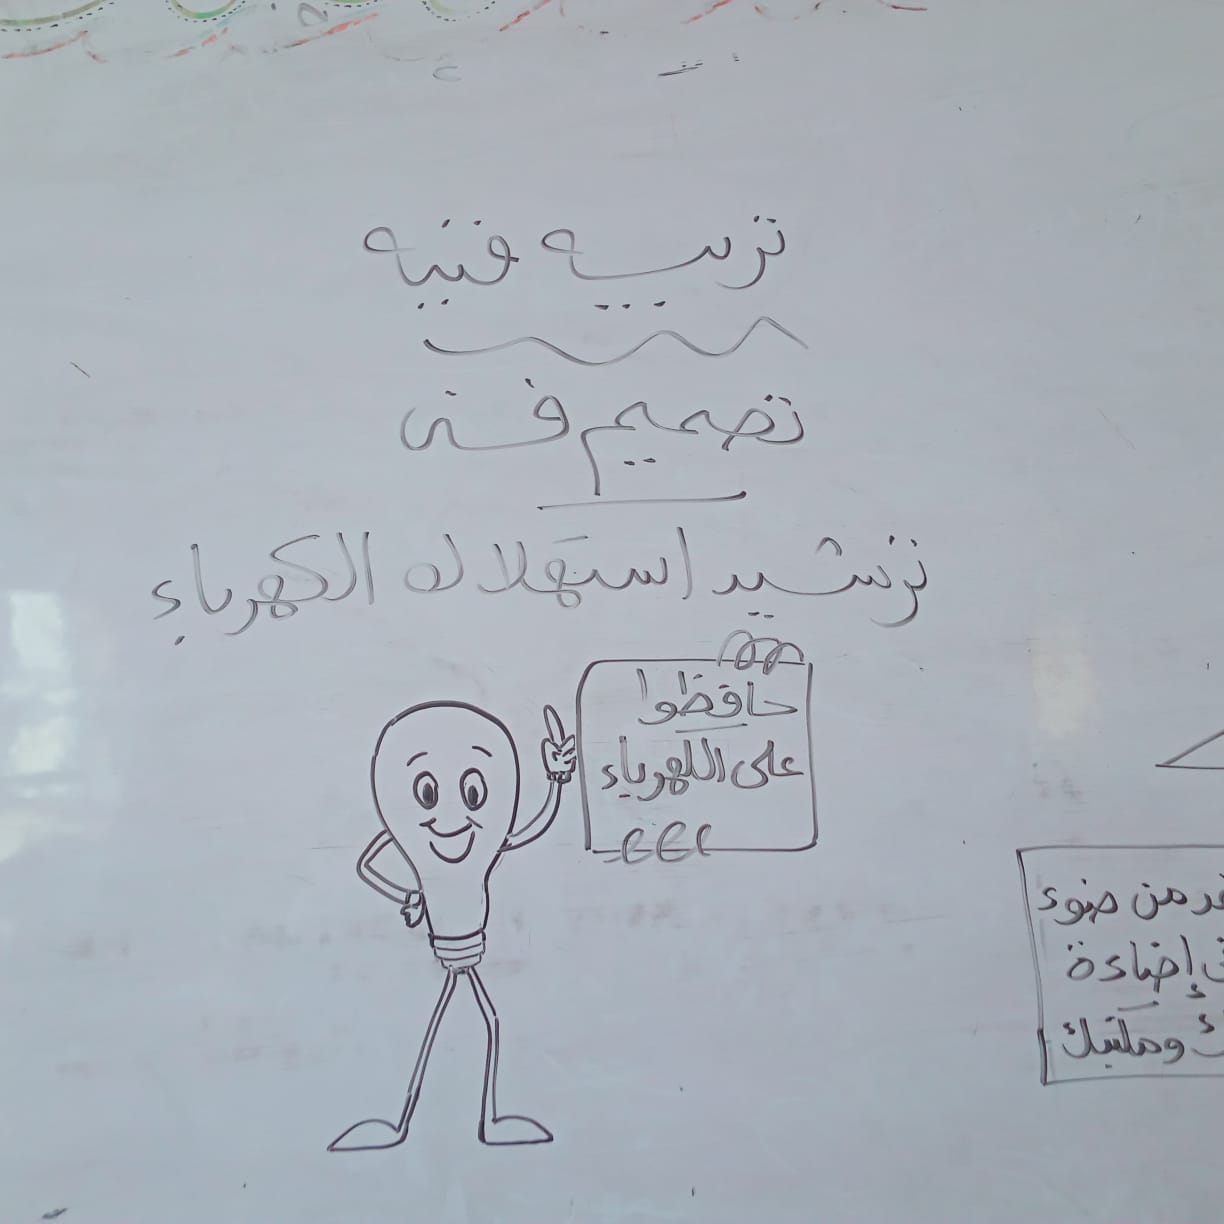 تربيه فنيه
تصميم فنى
ترشيد استهلاك الكهرباء
حافظوا
على الكهرباء
من ضوء
إضاءة
ومكتبك